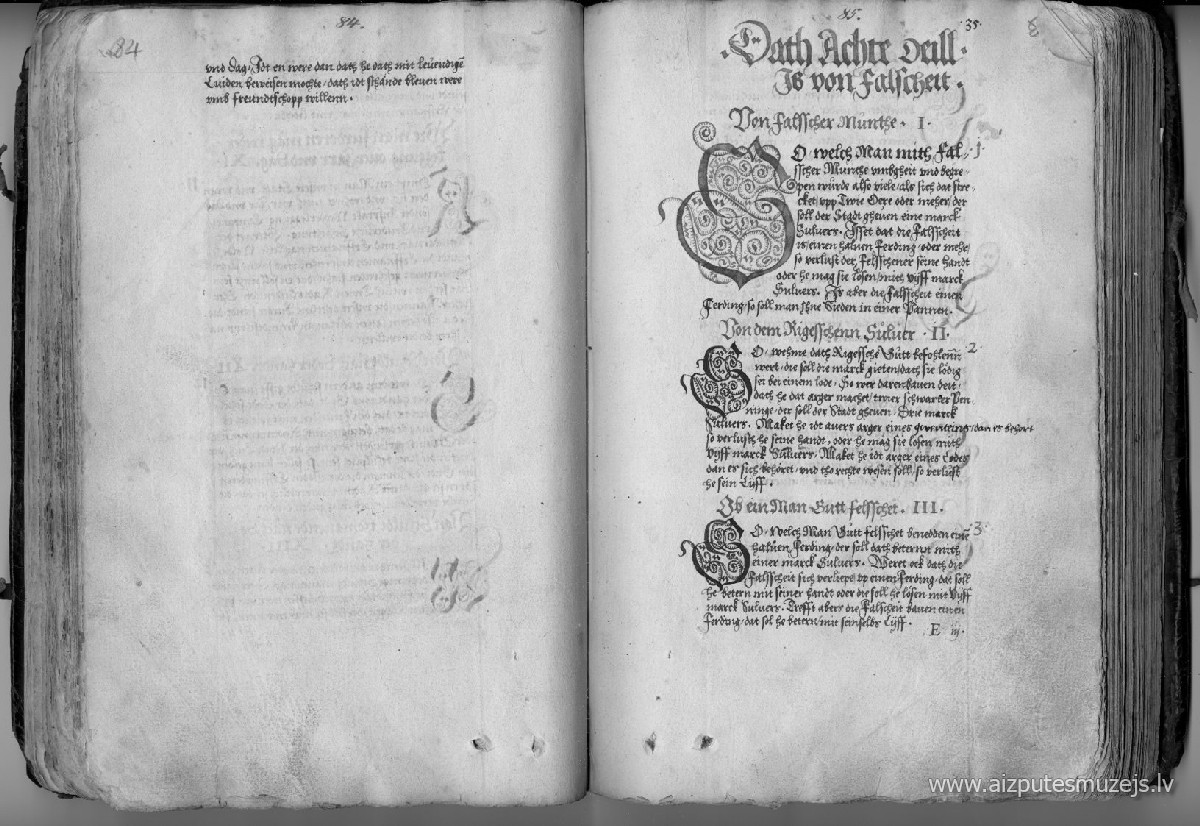 84
84.
vnd dag. Jdt en were dan dath he dath mit leuendigē
Luiden beweisen mochte, dath idt sthände bleuen were
vmb freundtschopp willenn.
85.
35.
8
Dath Achte deill.
Is von Falscheit.
Von falsscher Münthe. I.
O welch Man mith Fal- 1
sscher Münthe vmbgheit vnd begre-
pen würde also viele, als sich dat stre-
cket vpp Twie Oere oder meher, der
soll der Stadt gheuen eine marck
Suluers. Isset dat die Falsscheit
is, einen haluen Ferding, oder mehe,
so verlüst der Felsschener seine handt
oder he mag sie lösen, mith vyff marck
Suluers. Is aber die Falsscheit einen
Ferding, so soll man Ihne Sieden in einer Pannen.
Von dem Rigesschenn Süluer. II.
O wehme dath Rigessche Gutt befohlenn 2
wert, die soll die marck gieten, dath sie lödig
sei bei einem lode. So wer darenbauen deit,
dath he dat arger machet, twier schwarter Pen
ninge, der soll der Stadt gheuen, Drie marck
Suluers. Maket he idt auers arger eines , dan es behört
so verlüst he seine handt, oder he mag sie lösen mith
vyff marck Suluers. Maket he idt arger eines Lodes
dan es sich behöret, vnd tho rechte wesen soll, so verlüst
he sein Lyff.
Ob ein Man Gutt felsschet. III.
O welch Man Gütt felsschet benedden einē 3
haluen Ferding, der soll dath beternn mith
einer marck Suluers. Weret ock dath die
Falsscheit sich verliepe vp einen Ferding, dat soll
he betern mit seiner handt oder die soll he lösen mit Vyff
marck Suluers. Trefft abers die Falscheit bauen einen
Ferding, dat sol he betern, mit seinselbs Lyff.
E iij.
www.aizputesmuzejs.lv